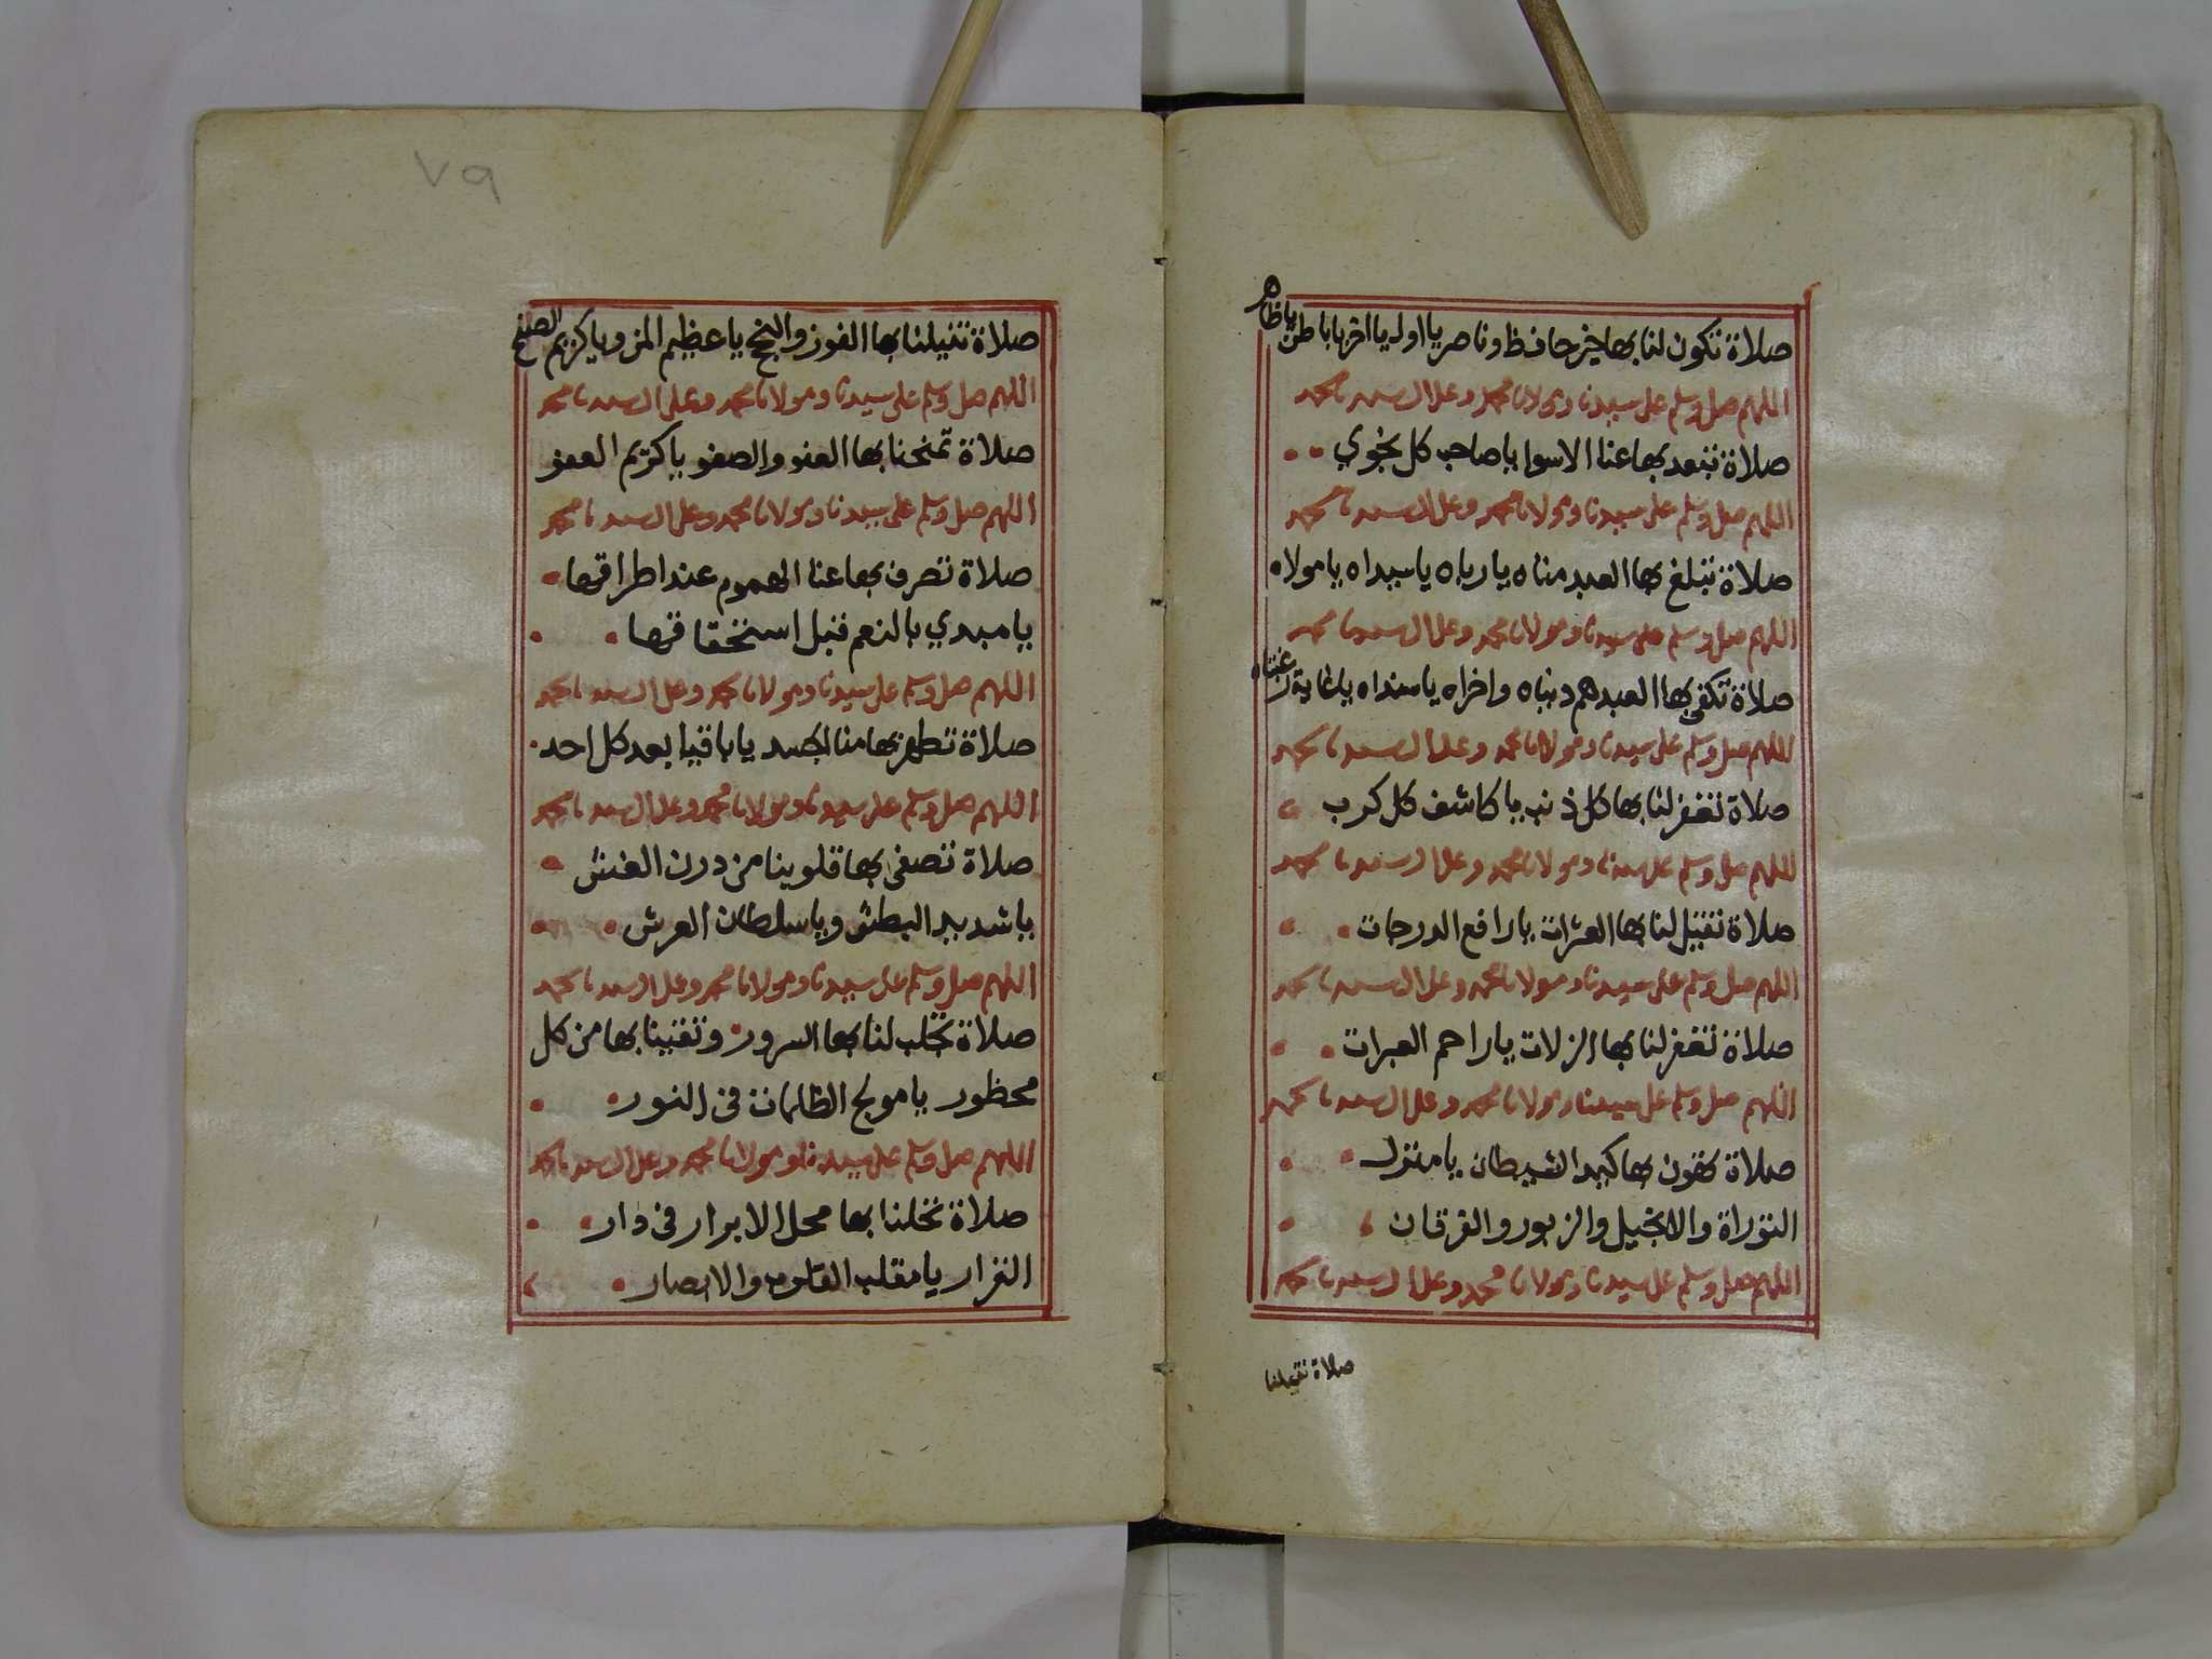 صلاة تكون لنا بها خير حافظ وناصر يا اول يا اخر يا باطن يا ظاهر
اللهم صل وسلم على سيدنا ومولانا محمد وعلى ال سيدنا محمد
صلاة تبعد بها عنا الاسوا يا صاحب كل نجوي
اللهم صل وسلم على سيدنا ومولانا محمد وعلى ال سيدنا محمد
صلاة تبلغ بها العبد مناه يا رباه يا سيداه يا مولاه
اللهم صل وسلم على سيدنا ومولانا محمد وعلى ال سيدنا محمد
صلاة تكفي بها العبد هم دنياه واخراه يا سنداه يا غاية
اللهم صل وسلم على سيدنا ومولانا محمد وعلى ال سيدنا محمد
صلاة تغفر لنا بها كل ذنب يا كاشف كل كرب
اللهم صل وسلم على سيدنا ومولانا محمد وعلى ال سيدنا محمد
صلاة تقيل لنا بها العثرات يا رافع الدرجات
اللهم صل وسلم على سيدنا ومولانا محمد وعلى ال سيدنا محمد
صلاة تغفر لنا بها الزلات يا راحم العبرات
اللهم صل وسلم على سيدنا ومولانا محمد وعلى ال سيدنا محمد
صلاة بها كيد الشيطان يا منزل
التوراة والانجيل والزبور والفرقان
اللهم صل وسلم على سيدنا ومولانا محمد وعلى ال سيدنا محمد
صلاة تنيلنا
٧٩
صلاة تنيلنا بها الفوز والنجح يا عظيم المن ويا كريم الصفح
اللهم صل وسلم على سيدنا ومولانا محمد وعلى ال سيدنا محمد
صلاة تمنحنا بها العفو والصفو يا كريم العفو
اللهم صل وسلم على سيدنا ومولانا محمد وعلى ال سيدنا محمد
صلاة تصرف بها عنا الهموم عند اطراقها
يا مبدي بالنعم قبل استحقاقها
اللهم صل وسلم على سيدنا ومولانا محمد وعلى ال سيدنا محمد
صلاة تطهر بها منا الجسد يا باقيا بعد كل احد
اللهم صل وسلم على سيدنا ومولانا محمد وعلى ال سيدنا محمد
صلاة تصفى بها قلوبنا من درن الغش
يا شديد البطش ويا سلطان العرش
اللهم صل وسلم على سيدنا ومولانا محمد وعلى ال سيدنا محمد
صلاة تجلب لنا بها السرور وتقينا بها من كل
محظور يا مولج الظلمات في النور
اللهم صل وسلم على سيدنا ومولانا محمد وعلى ال سيدنا محمد
صلاة تحلنا بها محل الابرار في دار
القرار يا مقلب القلوب والابصار